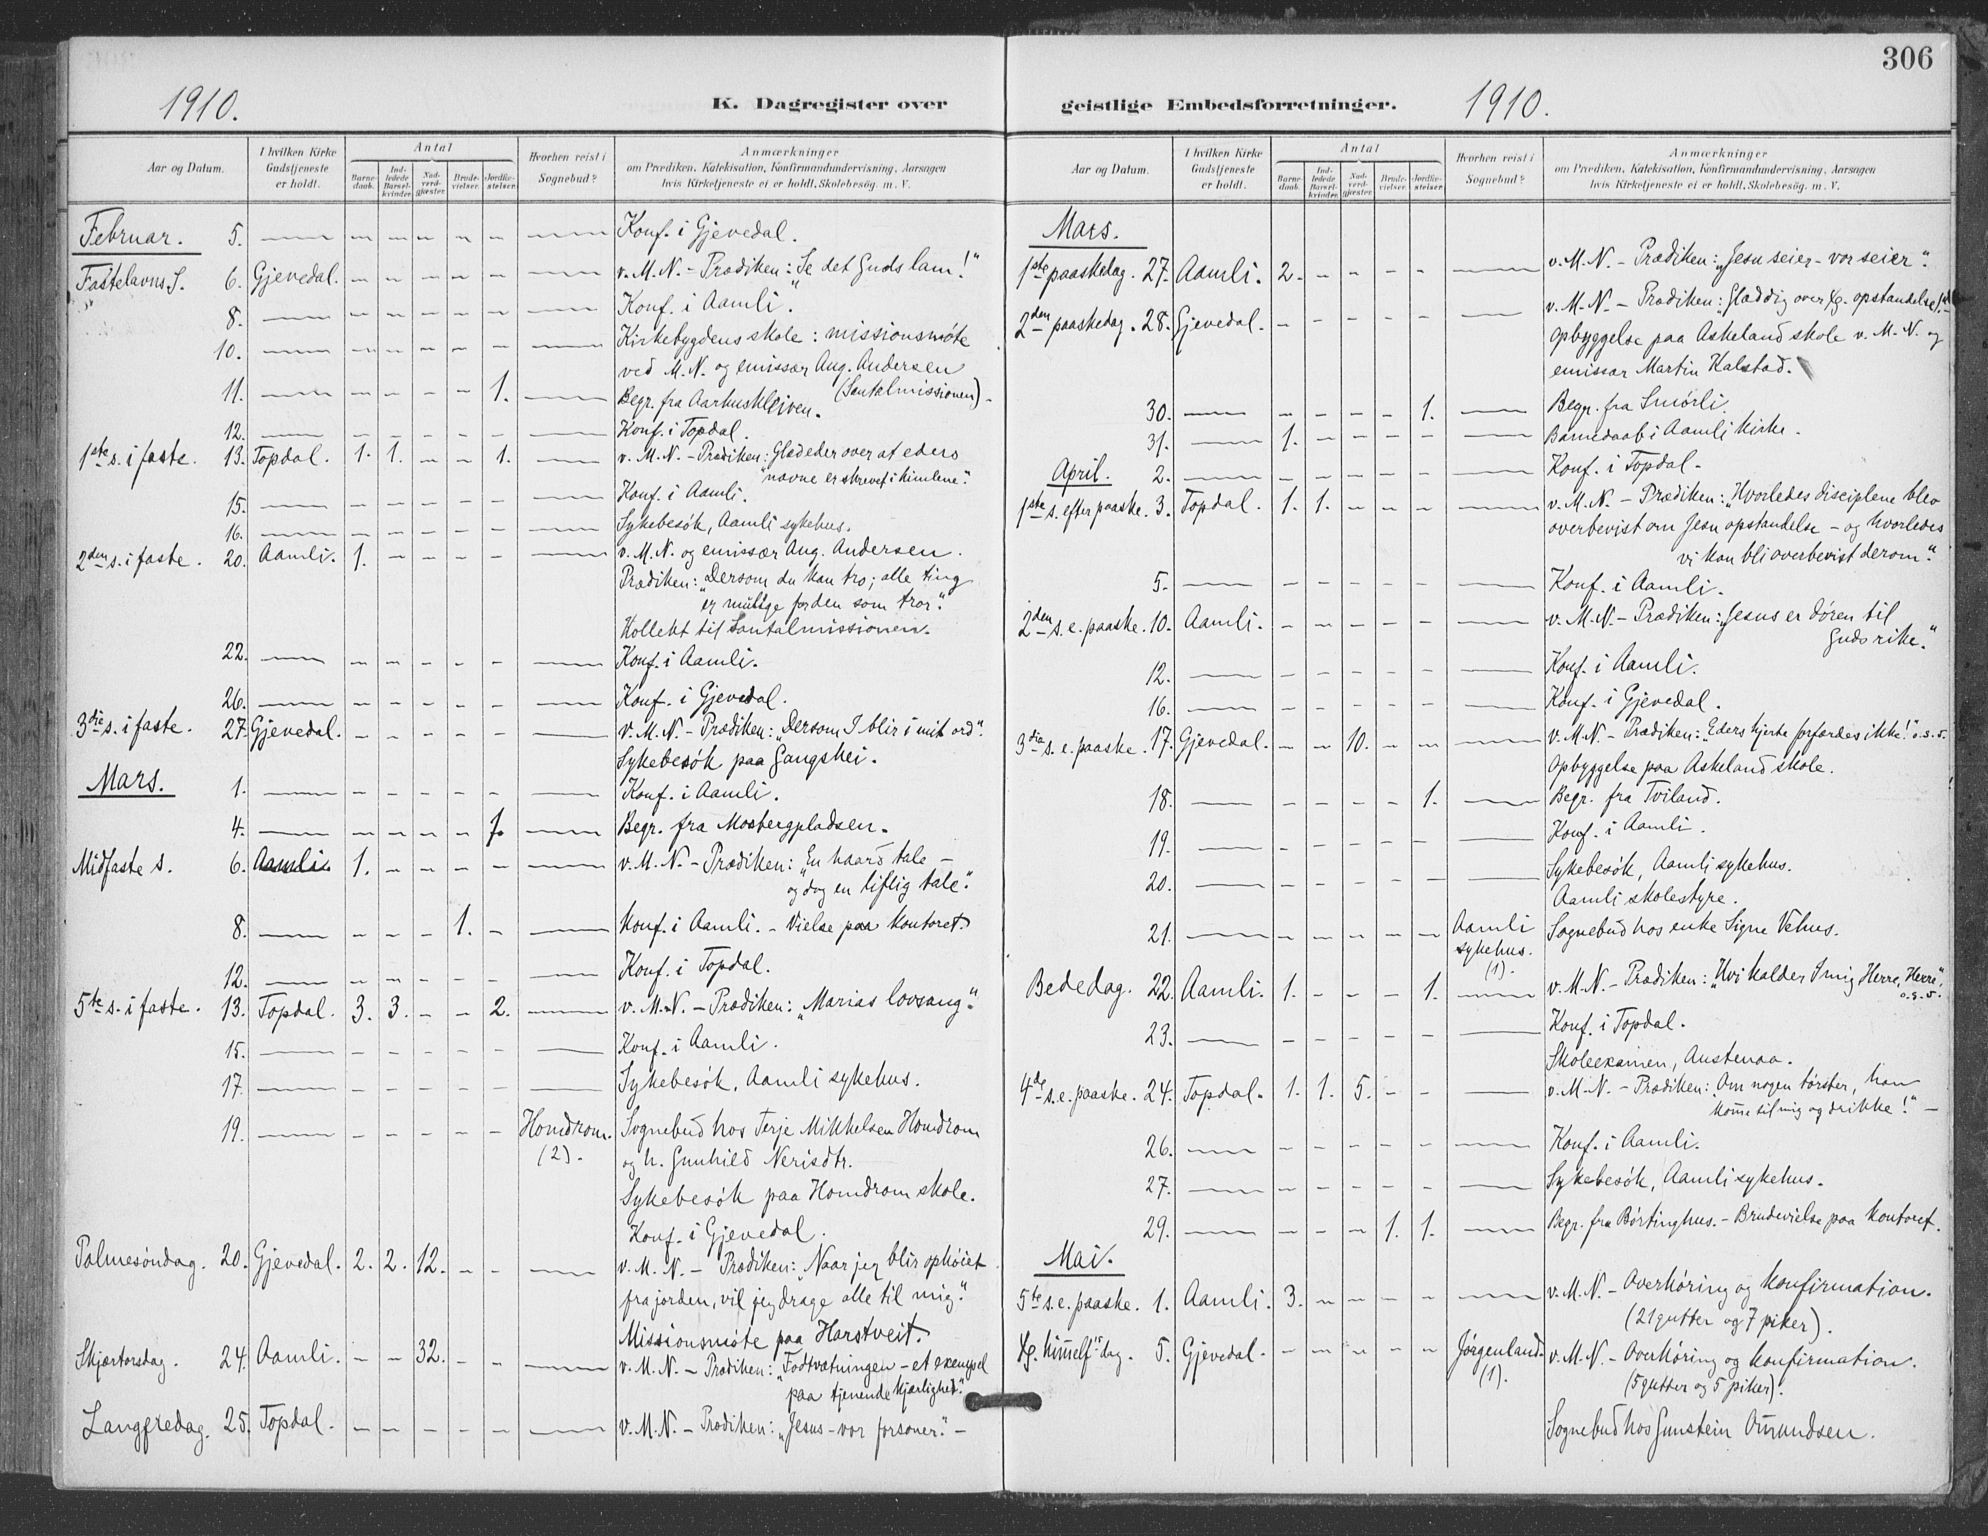 1910.
K. Dagregister over
Aar og Datum.
I hvilken Kirke Gudstjeneste er holdt.
Antal
Barnedaab.
Indledede Barselkvinder.
Nadverdgjester.
Brudevielser.
Jordfæstelser.
Hvorhen reist i Sognebud?
Anmærkninger
om Prædiken, Katekisation, Konfirmandundervisning, Aarsagen
hvis Kirketjeneste ei er holdt, Skolebesøg. m. V.
Februar. 5. — — — — — — — Konf. i Gjevedal.
Fastelavns S. 6. Gjevedal. — — — — — — v. M. N. – Prædiken: „Se det Guds lam!"
8. — — — — — — — Konf. i Aamli.
10. — — — — — — — Kirkebygdens skole: missionsmøte
ved M. N. og emissær Aug. Andersen
(Santalmissionen) –
11. — — — — — 1. — Begr. fra Aarhuskleiven.
12. — — — — — — — Konf. i Topdal.
1ste s. i faste. 13. Topdal. 1. 1. — — 1. — v. M. N. – Prædiken: Glæd eder over at eders
„navne er skrevet i himlene".
15. — — — — — — — Konf. i Aamli.
16. — — — — — — — Sykebesøk, Aamli sykehus.
2den s. i faste. 20. Aamli. 1. — — — — — v. M. N. og emissær Aug. Andersen.
Prædiken: „Dersom du kan tro; alle ting
er mulige for den som tror".
Kollekt til Santalmissionen.
22. — — — — — — — Konf. i Aamli.
26. — — — — — — — Konf. i Gjevedal.
3die s. i faste. 27. Gjevedal. — — — — — — v. M. N. – Prædiken: „Dersom I blir i mit ord".
Sykebesøk paa Gangshei.
Mars. 1. — — — — — — — Konf. i Aamli.
4. — — — — — 1. — Begr. fra Mosbergpladsen.
Midfaste s. 6. Aamli. 1. — — — — — v. M. N. – Prædiken: „En haard tale –
og dog en liflig tale".
8. — — — — 1. — — Konf. i Aamli. – Vielse paa kontoret.
12. — — — — — — — Konf. i Topdal.
5te s. i faste. 13. Topdal. 3. 3. — — 2. — v. M. N. – Prædiken: „Marias lovsang".
15. — — — — — — — Konf. i Aamli.
17. — — — — — — — Sykebesøk, Aamli sykehus.
19. — — — — — — Homdrom. (2). Sognebud hos Terje Mikkelsen Homdrom
og h. Gunhild Nerisdtr.
Sykebesøk paa Homdrom skole.
Konf. i Gjevedal.
Palmesøndag. 20. Gjevedal. 2. 2. 12. — — — v. M. N. – Prædiken: „Naar jeg blir ophøiet
fra jorden, vil jeg drage alle til mig".
Missionsmøte paa Harstveit.
Skjærtorsdag. 24. Aamli. — — 32. — — — v. M. N. – Prædiken: „Fodtvætningen – et exempel
paa tjenende kjærlighed".
Langfredag. 25. Topdal. — — — — — — v. M. N. – Prædiken: „Jesus – vor forsoner". –
306
geistlige Embedsforretninger.
1910.
Aar og Datum.
I hvilken Kirke Gudstjeneste er holdt.
Antal
Barnedaab.
Indledede Barselkvinder.
Nadverdgjester.
Brudevielser.
Jordfæstelser.
Hvorhen reist i Sognebud?
Anmærkninger
om Prædiken, Katekisation, Konfirmandundervisning, Aarsagen
hvis Kirketjeneste ei er holdt, Skolebesøg. m. V.
Mars.
1ste paaskedag. 27. Aamli. 2. — — — — v. M. N. – Prædiken: „Jesu seier – vor seier".
2den paaskedag. 28. Gjevedal. — — — — — — v. M. N. – Prædiken: „Glæd dig over Kr. opstandelse!"
Opbyggelse paa Askeland skole v. M. N. og
emissær Martin Kalstad.
30. — — — — — 1. — Begr. fra Smørli.
31. — 1. — — — — — Barnedaab i Aamli kirke.
April. 2. — — — — — — — Konf. i Topdal.
1ste s. efter paaske. 3. Topdal. 1. 1. — — — — v. M. N. – Prædiken: „Hvorledes disciplene blev
overbevist om Jesu opstandelse – og hvorledes
vi kan bli overbevist derom".
5. — — — — — — — Konf. i Aamli.
2den s. e. paaske. 10. Aamli. — — — — — — v. M. N. – Prædiken: „Jesus er døren til
Guds rike".
12. — — — — — — — Konf. i Aamli.
16. — — — — — — — Konf. i Gjevedal.
3die s. e. paaske. 17. Gjevedal. — — 10. — — — v. M. N. – Prædiken: „Eders hjerte forfærdes ikke!" o. s. v.
Opbyggelse paa Askeland skole.
18. — — — — — 1. — Begr. fra Tviland.
19. — — — — — — — Konf. i Aamli.
20. — — — — — — — Sykebesøk, Aamli sykehus.
Aamli skolestyre.
21. — — — — — — Aamli sykehus. (1). Sognebud hos enke Signe Vehus.
Bededag. 22. Aamli. 1. — — — 1. — v. M. N. – Prædiken: „Hvi kalder I mig Herre, Herre",
o. s. v.
23. — — — — — — — Konf. i Topdal.
Skoleexamen, Austenaa.
4de s. e. paaske. 24. Topdal. 1. 1. 5. — — — v. M. N. – Prædiken: „Om nogen tørster, han
komme til mig og drikke!" –
26. — — — — — — — Konf. i Aamli.
27. — — — — — — — Sykebesøk, Aamli sykehus.
29. — — — — 1. 1. — Begr. fra Børtinghus. – Brudevielse paa kontoret.
Mai.
5te s. e. paaske. 1. Aamli. 3. — — — — — v. M. N. – Overhøring og konfirmation.
(21 gutter og 7 piker).
Kr. himmelf.s dag. 5. Gjevedal. — — — — — Jørgenland. (1). v. M. N. – Overhøring og konfirmation.
(5 gutter og 5 piker).
Sognebud hos Gunstein Omundsen.